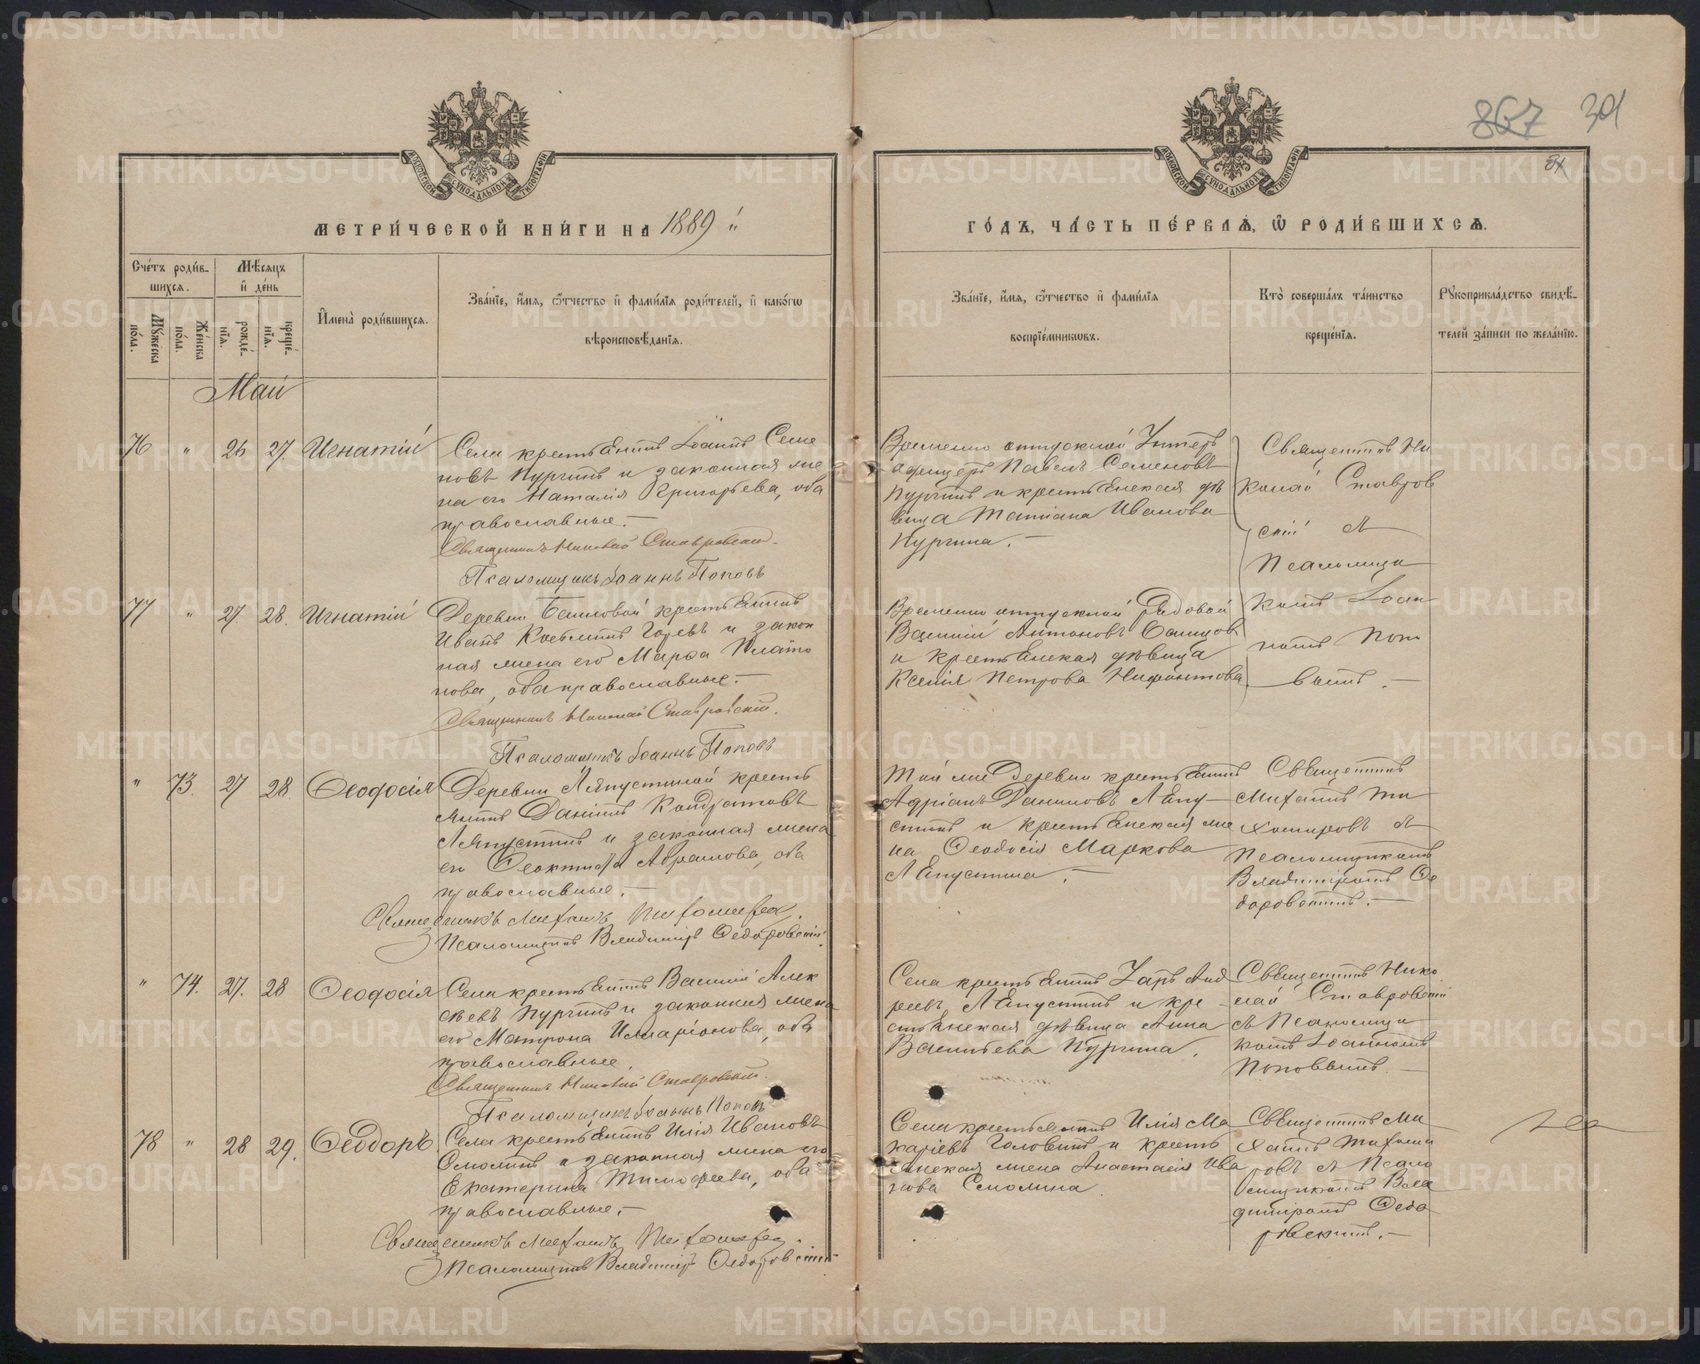 867 301
МЕТРИ́ЧЕСКОЙ КНИ́ГИ НА 1889
ГО́ДЪ, ЧА́СТЬ ПЕ́РВАѦ, Ѡ РОДИ́ВШИХСѦ.
Сче́тъ роди́в-
шихся.
Му́жеска по́ла.
Же́нска по́ла.
Мѣ́сяцъ и де́нь
рожде́нія.
креще́нія.
Имена̀ роди́вшихся.
Зва́нїе, и́мя, о́тчество и фами́лїя роди́телей, и како́гѡ
вѣроисповѣ́данїя.
Зва́нїе, и́мя, о́тчество и фами́лїя
воспрїе́мникѡвъ.
Кто̀ соверша́лъ та́инство
креще́нїя.
Рꙋкоприкла́дство свидѣ́-
телей за́писи по жела́нїю.
Май
76 " 26 27. Игнатій
Села крестьянинъ Іоаннъ Семе
новъ Пургинъ и законная же
на его Наталія Григорьева, оба
православные.—
Священникъ Николай Ставровскій.
Псаломщикъ Іоаннъ Поповъ
Временно отпускной Унтеръ
офицеръ Павелъ Семеновъ
Пургинъ и крестьянская дѣ
вица Татіана Иванова
Пургина.—
Священникъ Ни
колай Ставров
скій съ
Псаломщи
комъ Іоан
номъ Попо
вымъ.—
77 " 27 28. Игнатій
Деревни крестьянинъ
Иванъ и закон
ная жена его Марѳа Плато
нова, оба православные.—
Священникъ Николай Ставровскій.
Псаломщикъ Іоаннъ Поповъ
Временно отпускной рядовой
Василій Антоновъ
и крестьянская дѣвица
Ксенія Петрова Нифонтова
" 73. 27 28 Ѳеодосія
Деревни Ляпустиной кресть
янинъ Даніилъ Кондратовъ
Ляпустинъ и законная жена
его Ѳеоктиста Абрамова, оба
православные.—
Священникъ Михаилъ Тихомировъ.
Псаломщикъ Владиміръ Ѳедоровскій.
Той же Деревни крестьянинъ
Адріанъ Даниловъ Ляпу-
стинъ и крестьянская же
на Ѳеодосія Маркова
Ляпустина.—
Священникъ
Михаилъ Ти
хомировъ съ
Псаломщикомъ
Владиміромъ Ѳе
доровскимъ.—
" 74. 27. 28 Ѳеодосія
Села крестьянинъ Василій Алек
сѣевъ Пургинъ и законная жена
его Матрона Иларіонова, оба
православные.
Священникъ Николай Ставровскій.
Псаломщикъ Іоаннъ Поповъ
Села крестьянинъ Уаръ Анд
реевъ Ляпустинъ и кре
стьянская дѣвица Анна
Васильева Пургина.
Священникъ Нико
лай Ставровскій
съ Псаломщи
комъ Іоанномъ
Поповымъ.—
78 " 28 29. Ѳеодоръ
Села крестьянинъ Илія Ивановъ
Смолинъ и законная жена его
Екатерина Тимоѳеева, оба
православные.—
Священникъ Михаилъ Тихомировъ.
Псаломщикъ Владиміръ Ѳедоровскій
Села крестьянинъ Илія Ма
каріевъ Головинъ и кресть
янская жена Анастасія Ива
нова Смолина.
Священникъ Ми
хаилъ Тихоми
ровъ съ Псало
мщикомъ Вла
диміромъ Ѳедо
ровскимъ.—
METRIKI.GASO-URAL.RU